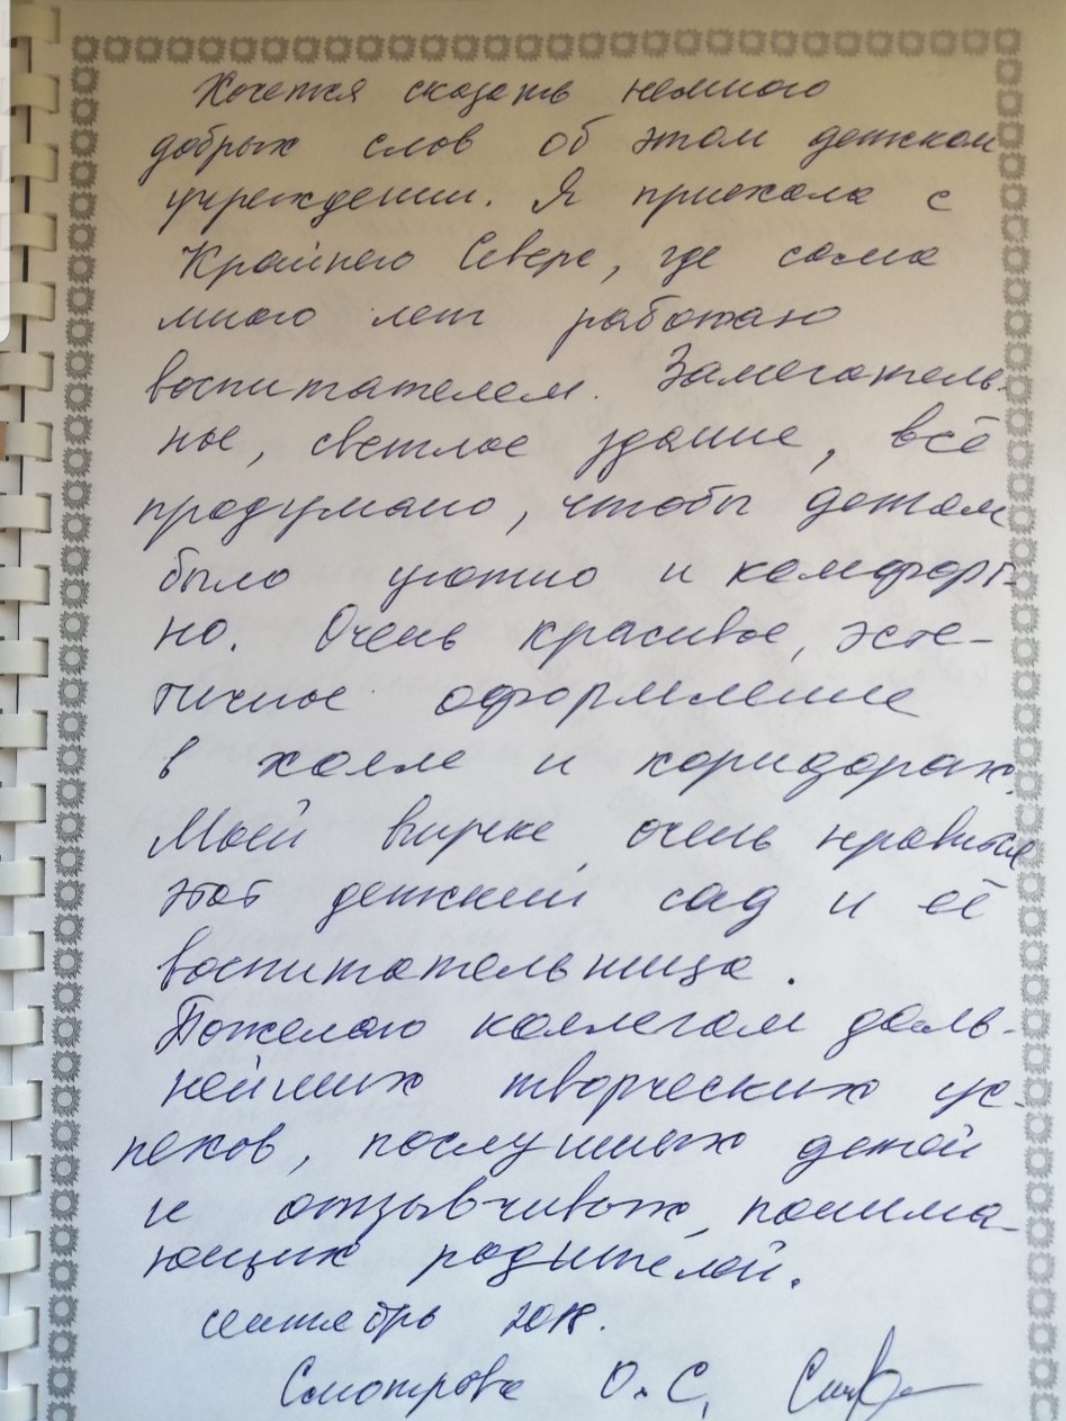 Хочется сказать немного
добрых слов об этом детском
учреждении. Я приехала с
Крайнего Севера, где сама
много лет работаю
воспитателем. Замечатель-
ное, светлое здание, всё
продумано, чтобы детям
было уютно и комфорт-
но. Очень красивое, эсте-
тичное оформление
в холле и коридорах.
Моей внучке очень нравится
этот детский сад и её
воспитательница.
Пожелаю коллегам даль-
нейших творческих ус-
пехов, послушных детей
и отзывчивых, понима-
ющих родителей.
сентябрь 2018.
Смотрова О.С.